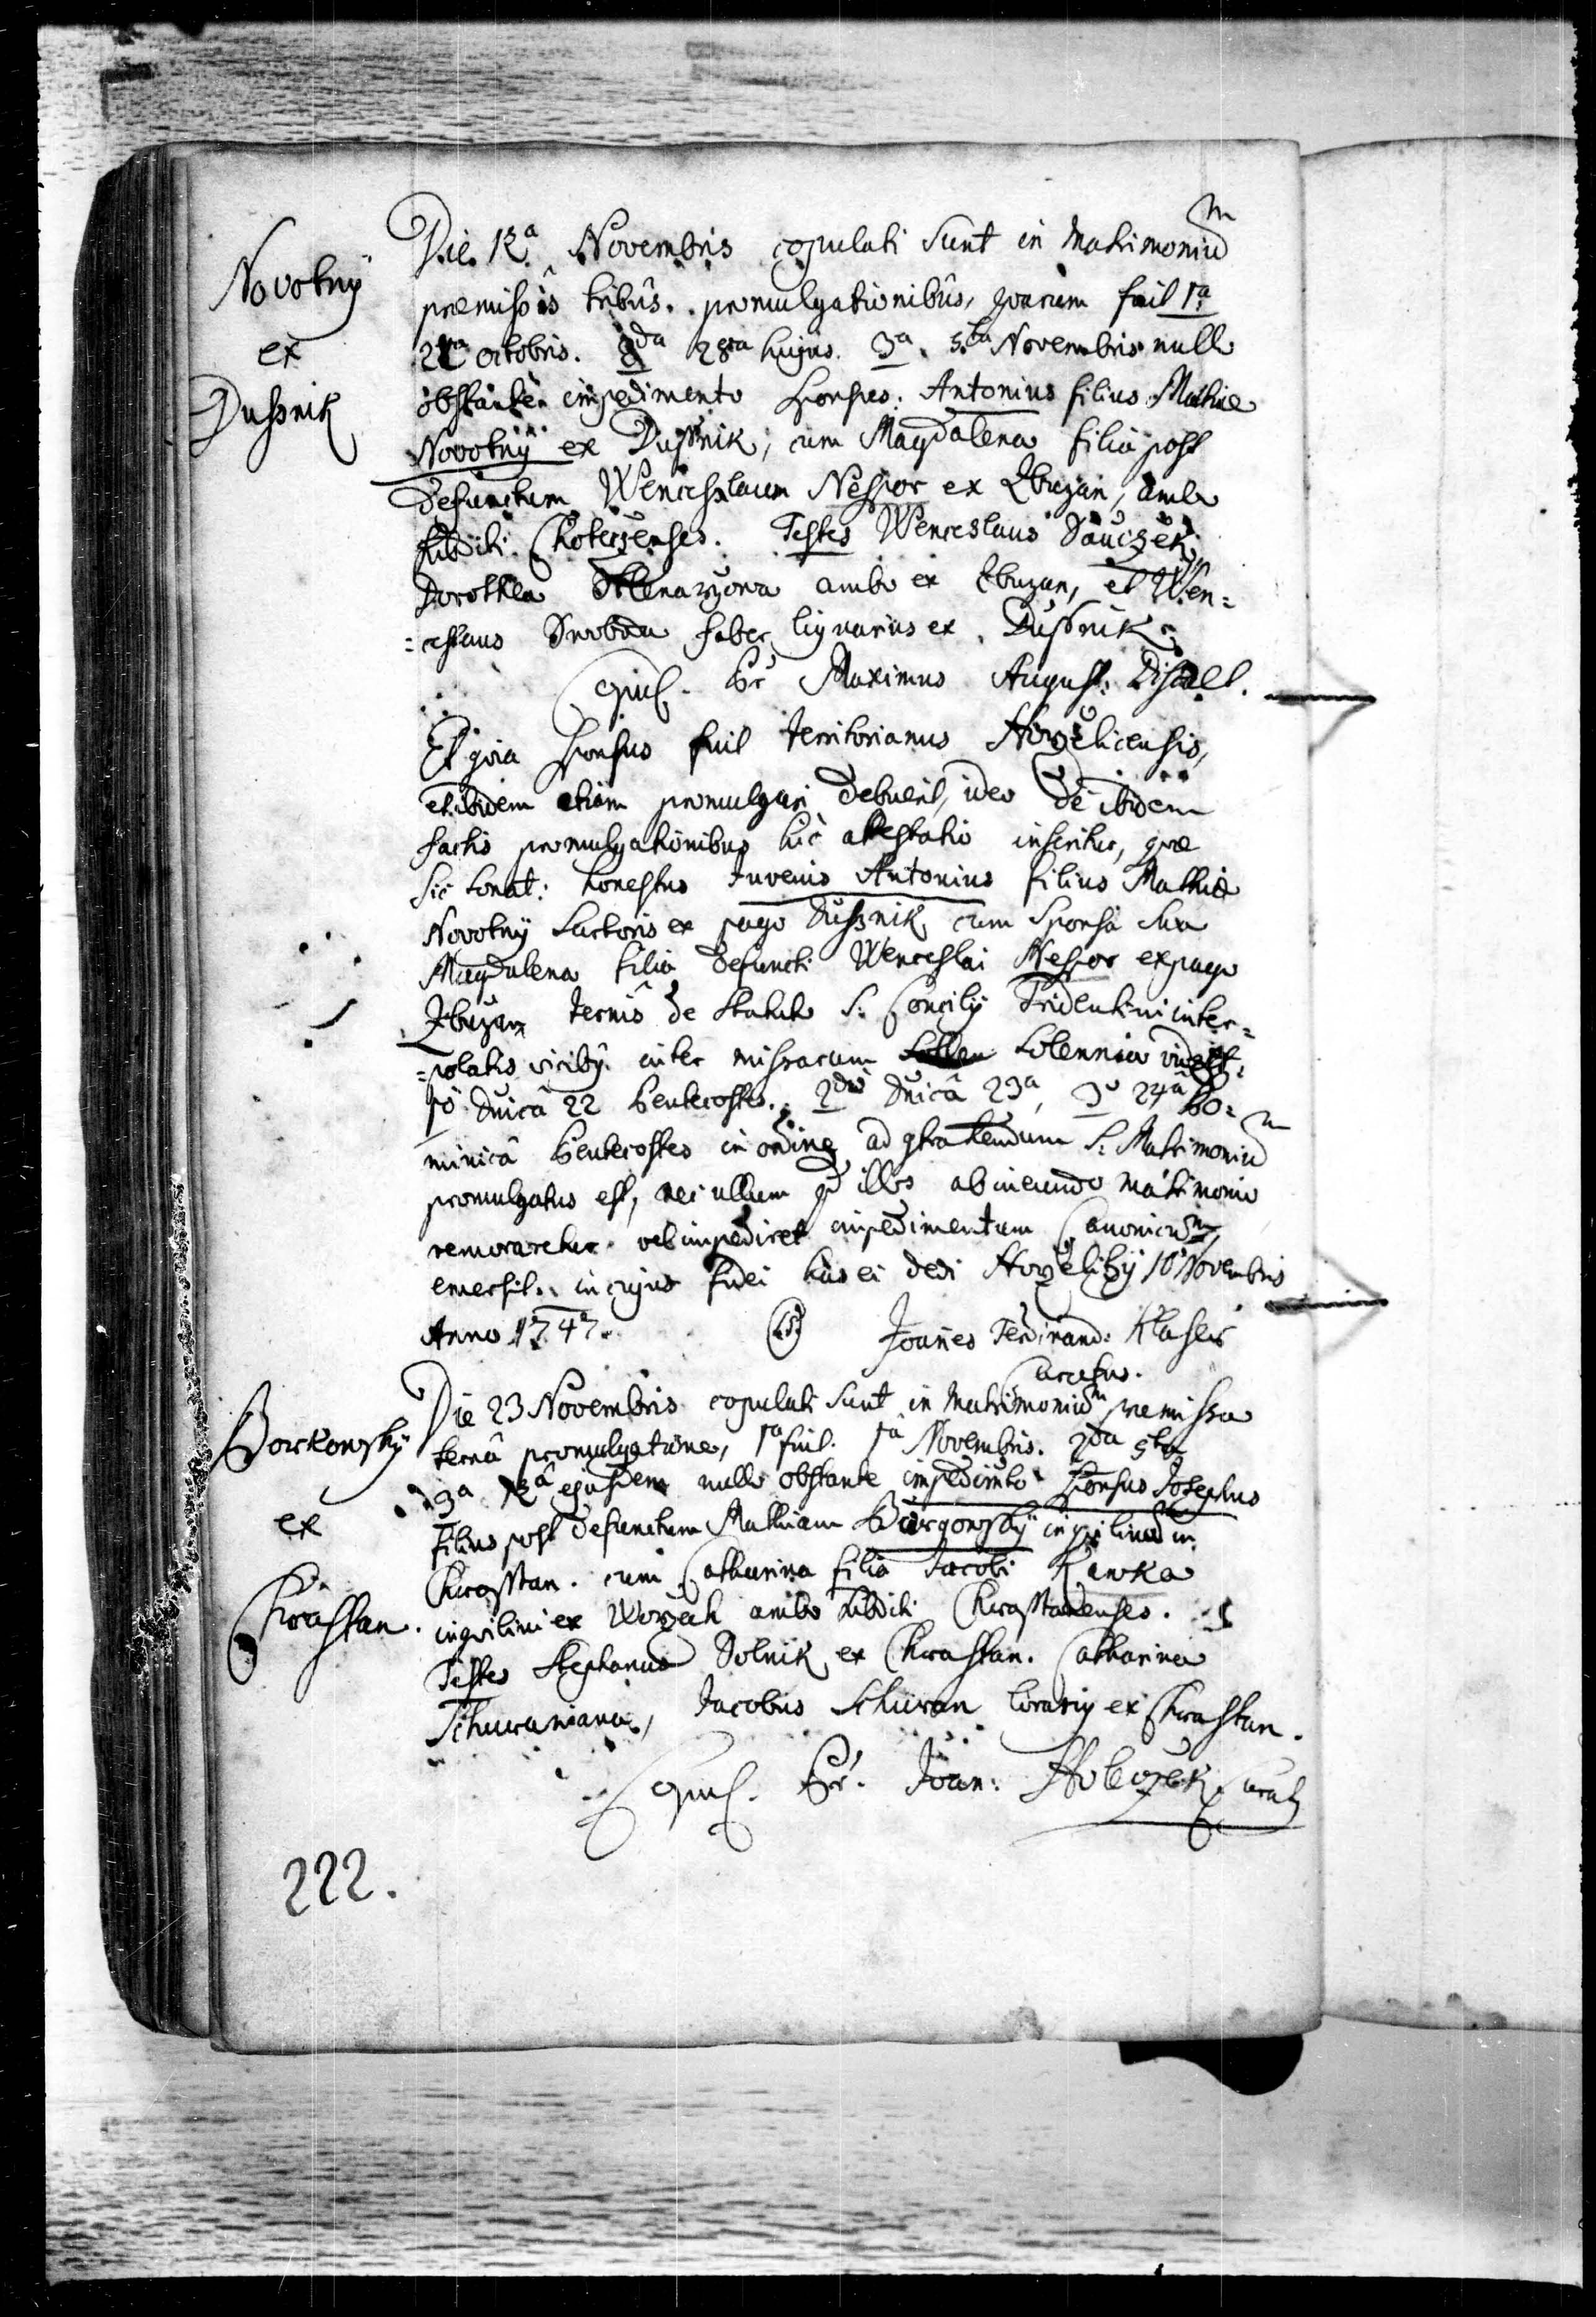 Novotnÿ
ex
Dussnik
Die 12ª Novembris copulati sunt in Matrimoniũ m
præmissis tribûs promulgationibûs, quarum fuit 1ª
octobris. 2da 28va hujus. 3ª 5ta Novembris nullo
obstante impedimento Sponsus: Antonius filius Mathiæ
Novotnÿ ex Dussnik, cum Magdalena filia post
defunctum Wenceslaum Nespor ex Zbuzan, ambo
subditi Chotecsenses. Testes Wenceslaus Dauczek,
Dorothea Sklenarzowa ambo ex Zbuzan, et Wen=
=ceslaus Swoboda faber lignarius ex Dussnik
Copul. Pr Maximus August: Discall.
Et quia Sponsus fuit territorianus Horzelicensis,
et ibidem etiam promulgari debuerit, ideo de ibidem
factis promulgationibus hic attestatio inseritur, quæ
sic sonat: honestus Juvenis Antonius filius Mathiæ
Novotnÿ Sartoris ex pago Dussnik cum Sponsa sua
Magdalena filia defuncti Wenceslai Nespor ex pago
Zbuzan ternis de statuto S: Concilÿ Tridentini inter=
=polatis vicibq inter missarum solemnia
1o Dnicâ 22 Pentecostes. 2do Dnicâ 23ª, 3o 24ª Do=
minicâ Pentecostes in ordine ad cktrahendum S: Matrimoniũ m
promulgatus est, nec ullum qd illos ab ineundo matrimonio
remoraretur vel impediret impedimentum Canonicũ m
emersit. in cujus fidei has ei dedi Horzelitzÿ 10 Novembris
Anno 1747. LS Joannes Ferdinand: Klaser
Curatus.
Borkowskÿ
ex
Chrastan.
Die 23 Novembris copulati sunt in Matrimoniũ m præmissa
ternâ promulgatione, 1ª fuit. 1ª Novembris. 2da 5ta
3ª 12ª ejusdem nullo obstante impedimto Sponsus Josephus
filius post defunctum Mathiam Burgowskÿ inquilinũ in
Chrasstan. cum Catharina filia Jacobi Kawka
inquilini ex Worzech ambo subditi Chrasstanenses.
Testes Stephanus Dolnik ex Chrastan. Catharina
Schuraniana, Jacobus Schuran ex Chrastan.
Copul. Pr. Joan: Holeczek Curatq
222.